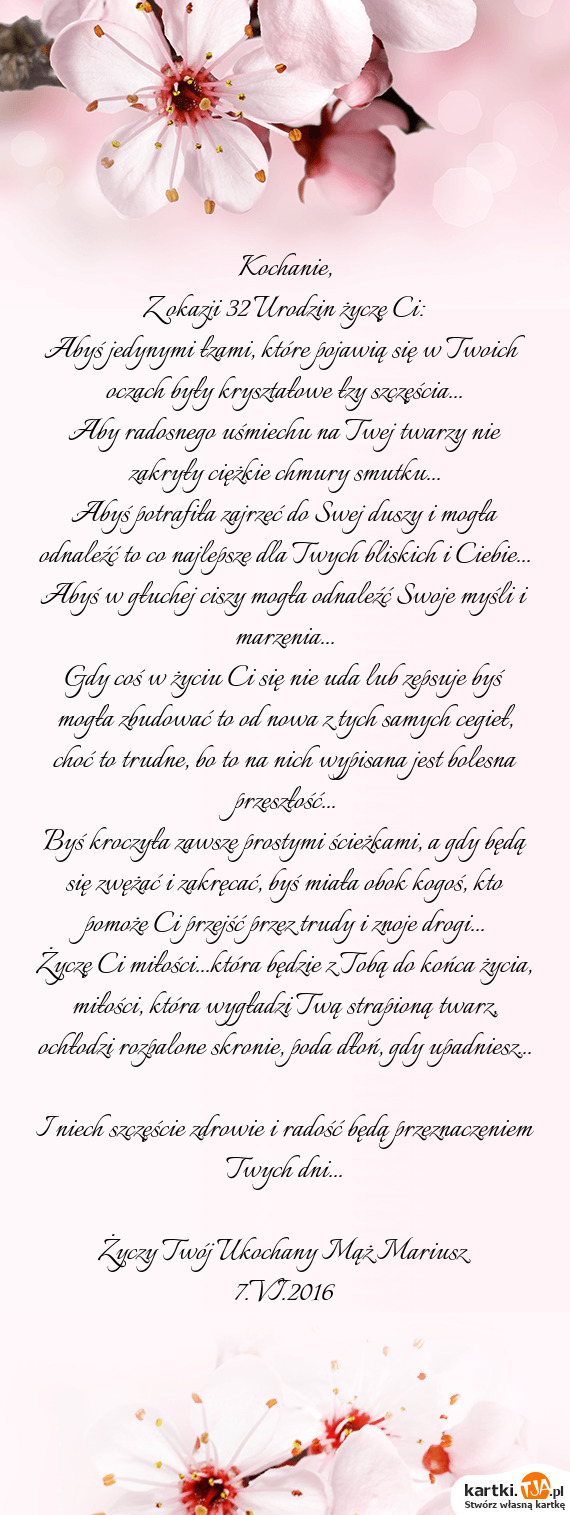 Kochanie,
Z okazji 32 Urodzin życzę Ci:
Abyś jedynymi łzami, które pojawią się w Twoich
oczach były kryształowe łzy szczęścia...
Aby radosnego uśmiechu na Twej twarzy nie
zakryły ciężkie chmury smutku...
Abyś potrafiła zajrzęć do Swej duszy i mogła
odnaleźć to co najlepsze dla Twych bliskich i Ciebie...
Abyś w głuchej ciszy mogła odnaleźć Swoje myśli i
marzenia...
Gdy coś w życiu Ci się nie uda lub zepsuje byś
mogła zbudować to od nowa z tych samych cegieł,
choć to trudne, bo to na nich wypisana jest bolesna
przeszłość...
Byś kroczyła zawsze prostymi ścieżkami, a gdy będą
się zwężać i zakręcać, byś miała obok kogoś, kto
pomoże Ci przejść przez trudy i znoje drogi...
Życzę Ci miłości...która będzie z Tobą do końca życia,
miłości, która wygładzi Twą strapioną twarz,
ochłodzi rozpalone skronie, poda dłoń, gdy upadniesz...
I niech szczęście zdrowie i radość będą przeznaczeniem
Twych dni...
Życzy Twój Ukochany Mąż Mariusz
7.VI.2016
kartki.TJA.pl
Stwórz własną kartkę